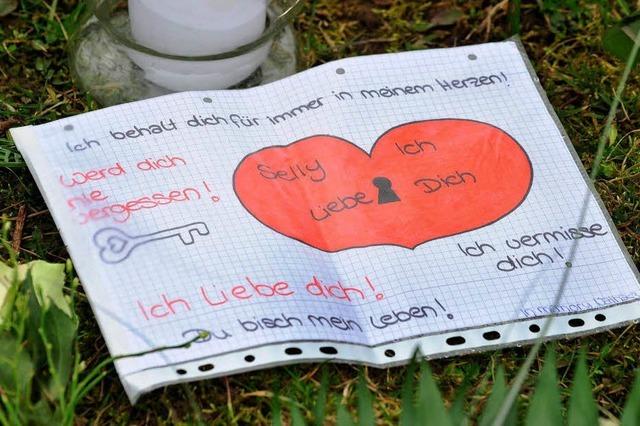 Ich behalt dich für immer in meinem Herzen!
Werd dich
nie
vergessen!
Selly Ich
Liebe Dich
Ich vermisse
dich!
Ich Liebe dich!
Du bisch mein Leben!
In memory